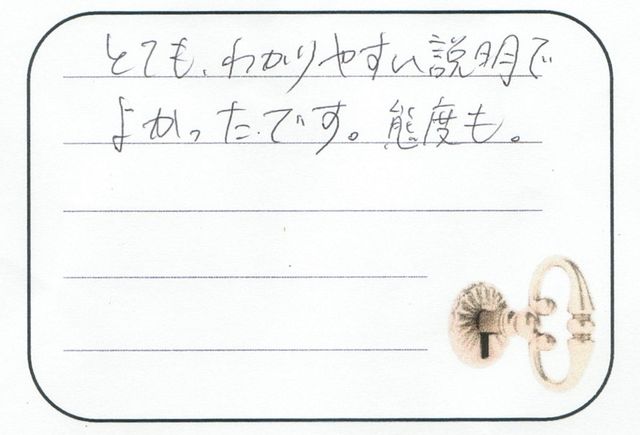 とても、わかりやすい説明で
よかったです。態度も。